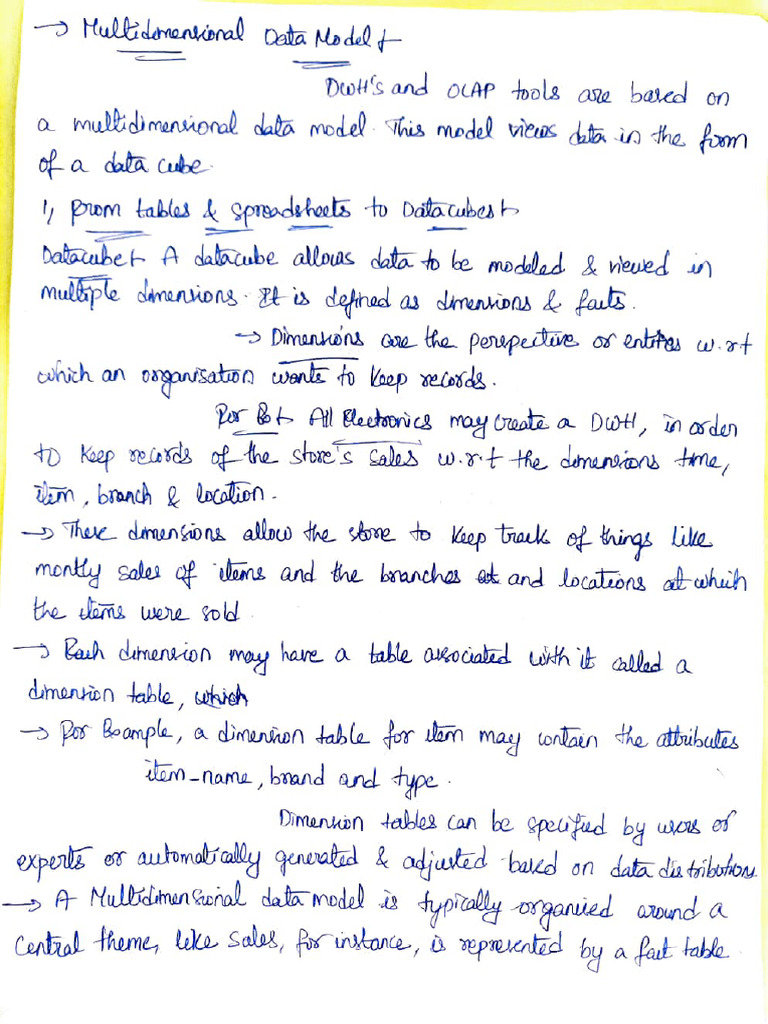 → Multidimensional Data Model :-
DWH's and OLAP tools are based on
a multidimensional data model. This model views data in the form
of a data cube.
1, From tables & Spreadsheets to Datacubes :-
Datacube :- A datacube allows data to be modeled & viewed in
multiple dimensions. It is defined as dimensions & facts.
→ Dimensions are the perspective or entities w.r.t
which an organisation wants to keep records.
For Ex :- All Electronics may create a DWH, in order
to keep records of the store's sales w.r.t the dimensions time,
item, branch & location.
→ These dimensions allow the store to keep track of things like
montly sales of items and the branches at and locations at which
the items were sold.
→ Each dimension may have a table associated with it called a
dimension table, which
→ For Example, a dimension table for item may contain the attributes
item_name, brand and type.
Dimension tables can be specified by users or
experts or automatically generated & adjusted based on data distributions.
→ A Multidimensional data model is typically organized around a
central theme, like sales, for instance, is represented by a fact table.